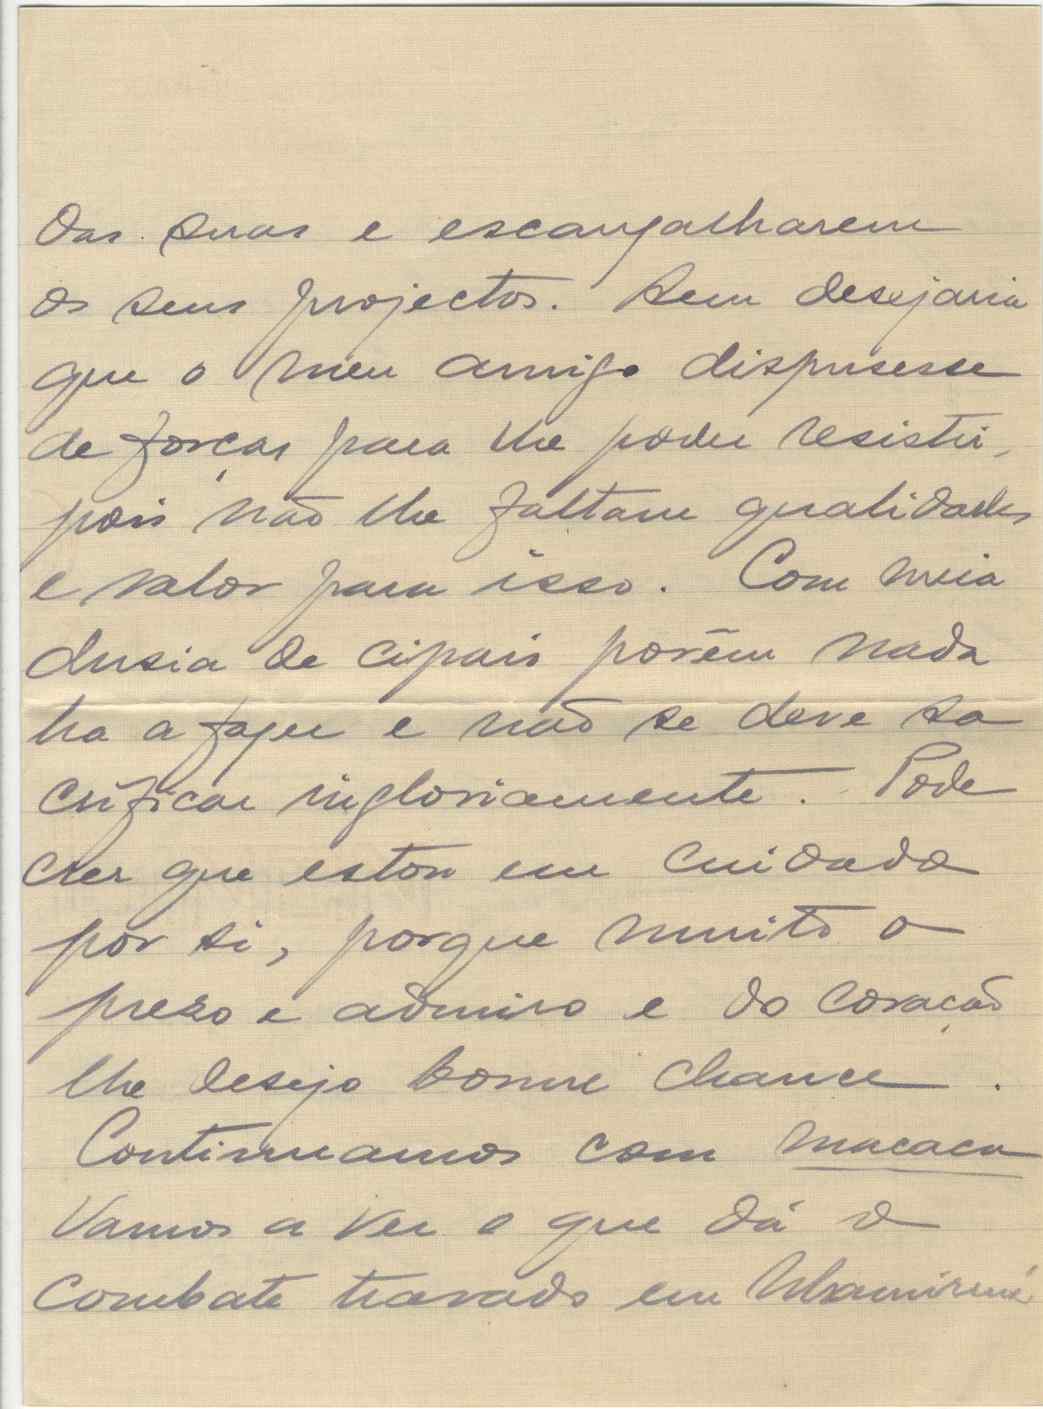 das suas e escangalharem
os seus projectos. Bem desejaria
que o meu amigo dispusesse
de forças para lhe poder resistir,
pois não lhe faltam qualidades
e valor para isso. Com meia
dusia de cipais porêm nada
ha a fazer e não se deve sa
crificar ingloriamente. Pode
crer que estou em cuidado
por si, porque muito o
prezo e admiro e do coração
lhe desejo bonne chance.
Continuamos com macaca
Vamos a ver o que dá o
combate travado em